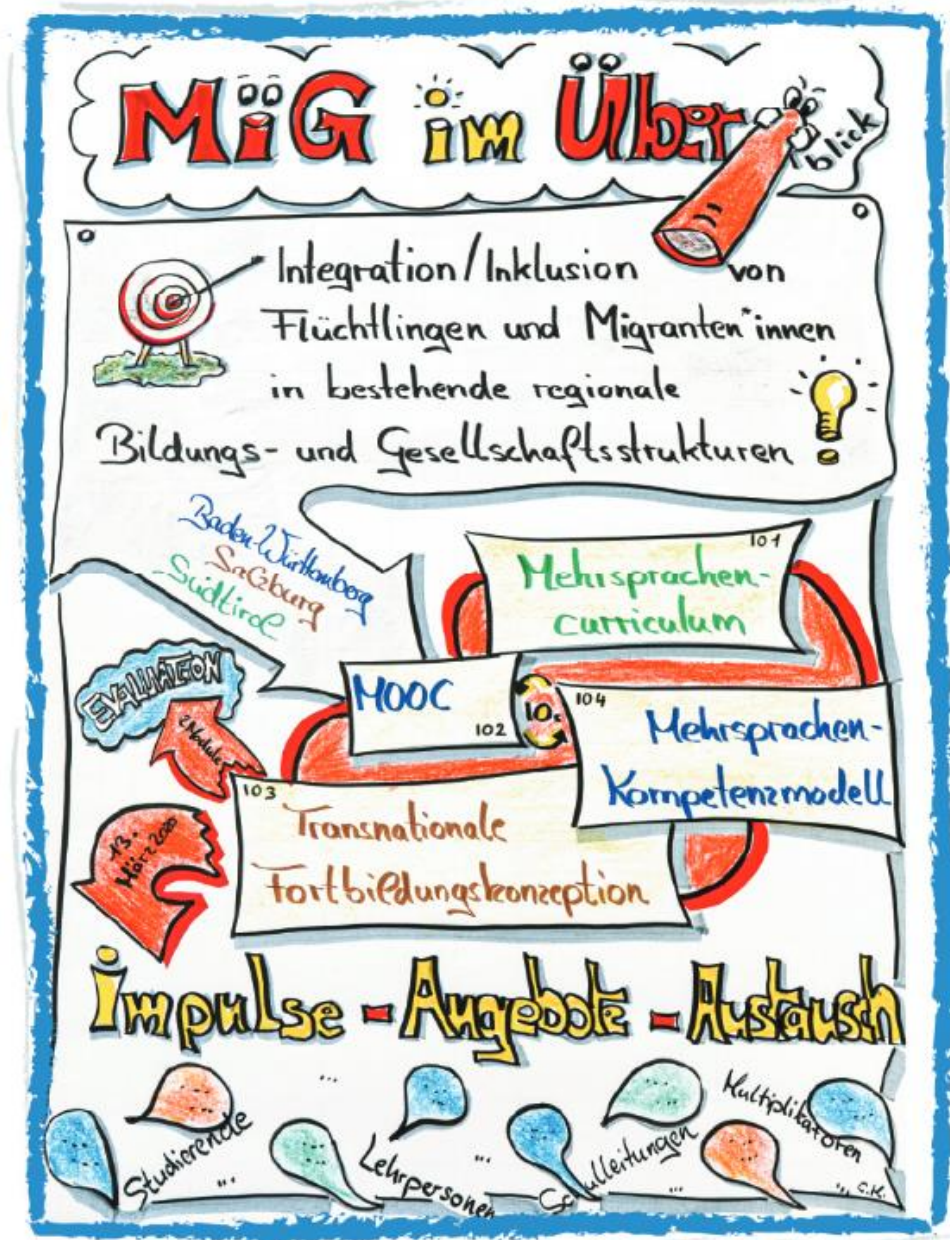 MiG im Über
blick
Integration/Inklusion von
Flüchtlingen und Migranten*innen
in bestehende regionale
Bildungs- und Gesellschaftsstrukturen
Baden-Württemberg
Salzburg
Südtirol
101
Mehrsprachen-
curriculum
EVALUATION
2 Module
MOOC
102
10.
104
Mehrsprachen-
Kompetenzmodell
103
Transnationale
Fortbildungskonzeption
13.
März 2020
Impulse - Angebote - Austausch
...
Studierende
...
Lehrpersonen
...
Schulleitungen
...
Multiplikatoren
... C.K.